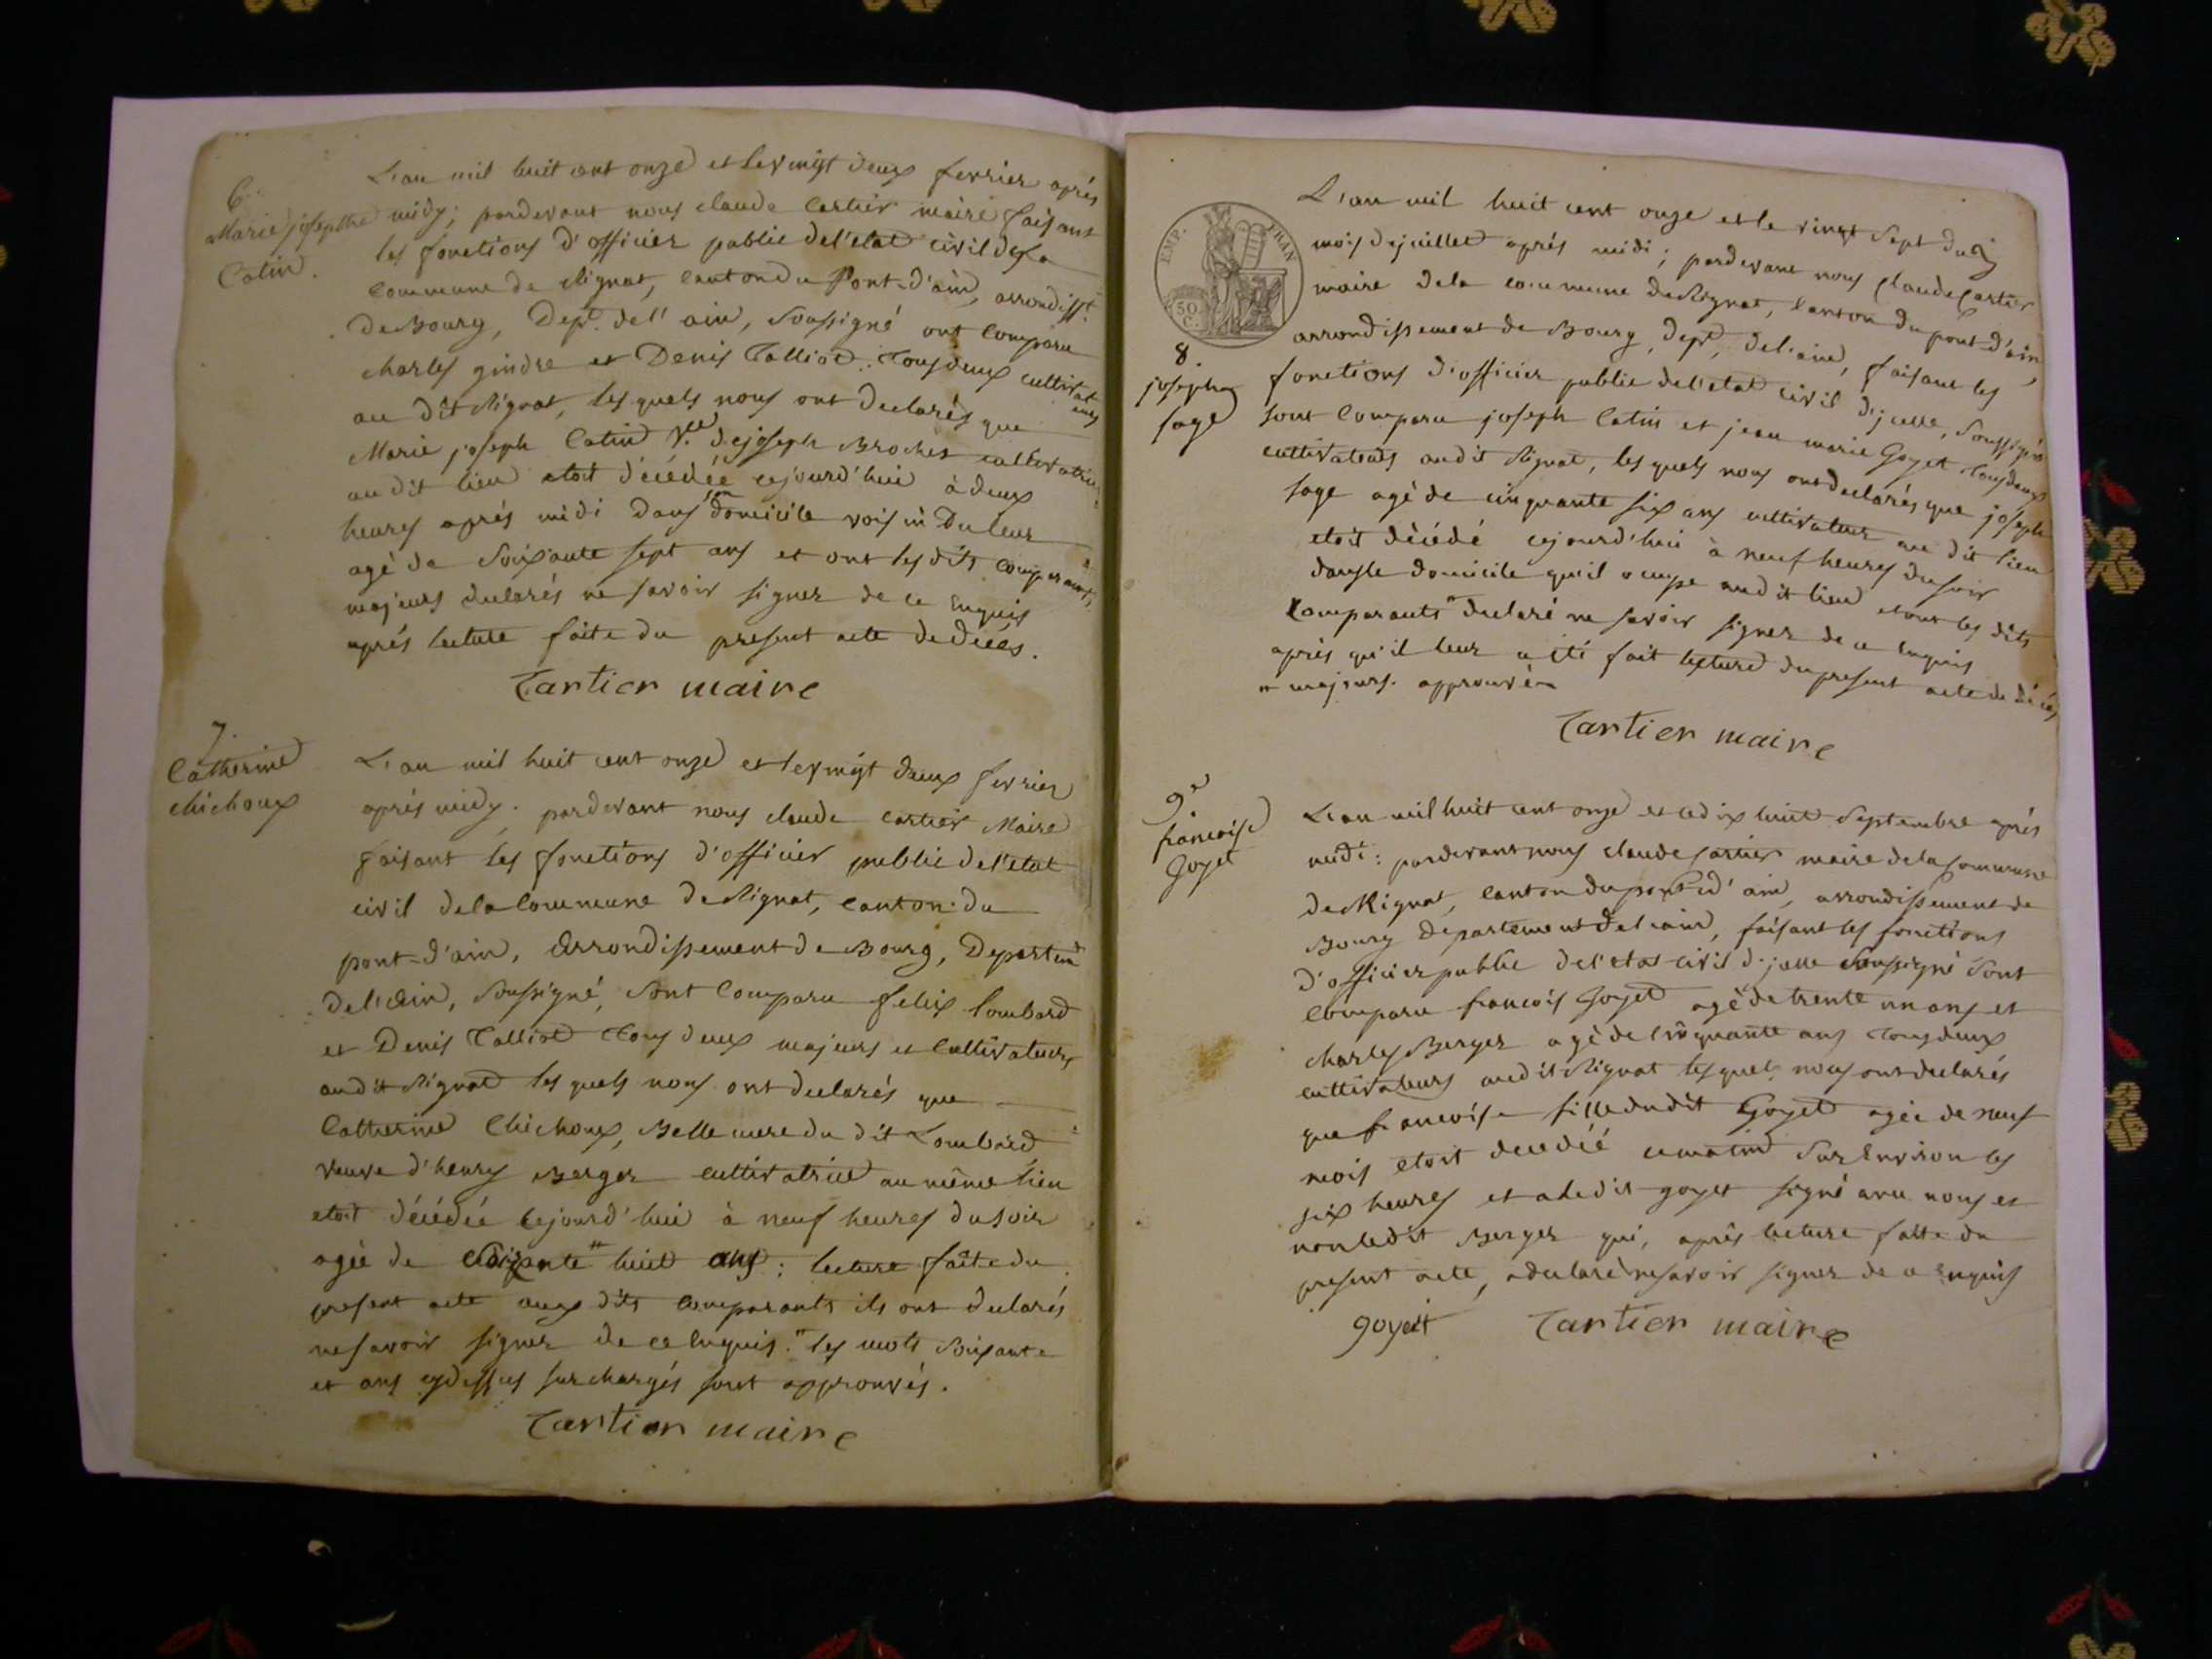 6.
Marie josepthe
Catin.
L'an mil huit cent onze et le vingt deux fevrier aprés
midy; pardevant nous claude Cartier maire faisant
les fonctions d'officier public de l'etat civil de la
commune de Rignat, canton du Pont-d'ain, arrondisst.
De Bourg, Dept. de l'ain, soussigné ont comparu
charles gindre et Denis Talliod: tous deux cultivateurs
au dit Rignat, les quels nous ont declarés que
Marie joseph Catin Vve. de joseph Brochet cultivatrice
au dit lieu etoit décédée cejourd'hui à deux
heures aprés midi dans son domicile voisin du leur
agé de soixante sept ans et ont les dits comparants
majeurs declarés ne savoir signer de ce Enquis
aprés lecture faite du present acte de decés.
Cartier maire
7.
Catherine
chichoux
L'an mil huit cent onze et le vingt deux fevrier
aprés midy. pardevant nous claude cartier Maire
faisant les fonctions d'officier public de l'etat
civil de la Commune de Rignat, canton du
pont-d'ain, arrondissement de Bourg, Departemt
de l'ain, soussigné, sont Comparu felix Lombard
et Denis Talliod tous deux majeurs et Cultivateurs
au dit Rignat les quels nous ont declarés que
Catherine Chichoux, Belle mere du dit Lombard
veuve d'henry Berger cultivatrice au même lieu
etoit décédée cejourd'hui à neuf heures du soir
agée de soixante " huit ans: lecture faite du
present acte aux dits comparants ils ont declarés
ne savoir signer de ce Enquis. " les mots soixante
et ans cydessus surchargés sont approuvés.
Cartier maire
EMP. FRAN
50
C.
8.
joseph
sage
L'an mil huit cent onze et le vingt sept du
mois de juillet aprés midi; pardevant nous Claude Cartier
maire de la commune de Rignat, canton du pont-d'ain,
arrondissement de Bourg, dept, de l'ain, faisant les
fonctions d'officier public de l'etat civil d'jcelle, soussigné
sont Comparu joseph Catin et jean marie Goyet tous deux
cultivateurs au dit Rignat, les quels nous ont declarés que joseph
sage agé de cinquante six ans cultivateur au dit lieu
etoit décédé cejourd'hui à neuf heures du soir
dans le domicile qu'il occupe au dit lieu et ont les dits
Comparants " declaré ne savoir signer de ce Enquis
aprés qu'il leur a été fait lecture du present acte de décés
" majeurs. approuvé
Cartier maire
9e
francoise
Goyet
L'an mil huit cent onze et le dix huit Septembre aprés
midi: pardevant nous claude Cartier maire de la Commune
de Rignat, canton du pont-d'ain, arrondissement de
Bourg departement de l'ain, faisant les fonctions
d'officier public de l'etat civil d'jcelle soussigné sont
Comparu francois Goyet agé de trente un ans et
charles Berger agé de Cinquante ans tous deux
cultivateurs au dit Rignat les quels nous ont declarés
que francoise fille du dit Goyet agée de neuf
mois etoit decedée ce matin sur Environ les
six heures et a le dit goyet signé avec nous et
non le dit Berger qui, aprés lecture faite du
present acte, a declaré ne savoir signer de ce Enquis
goyett Cartier maire